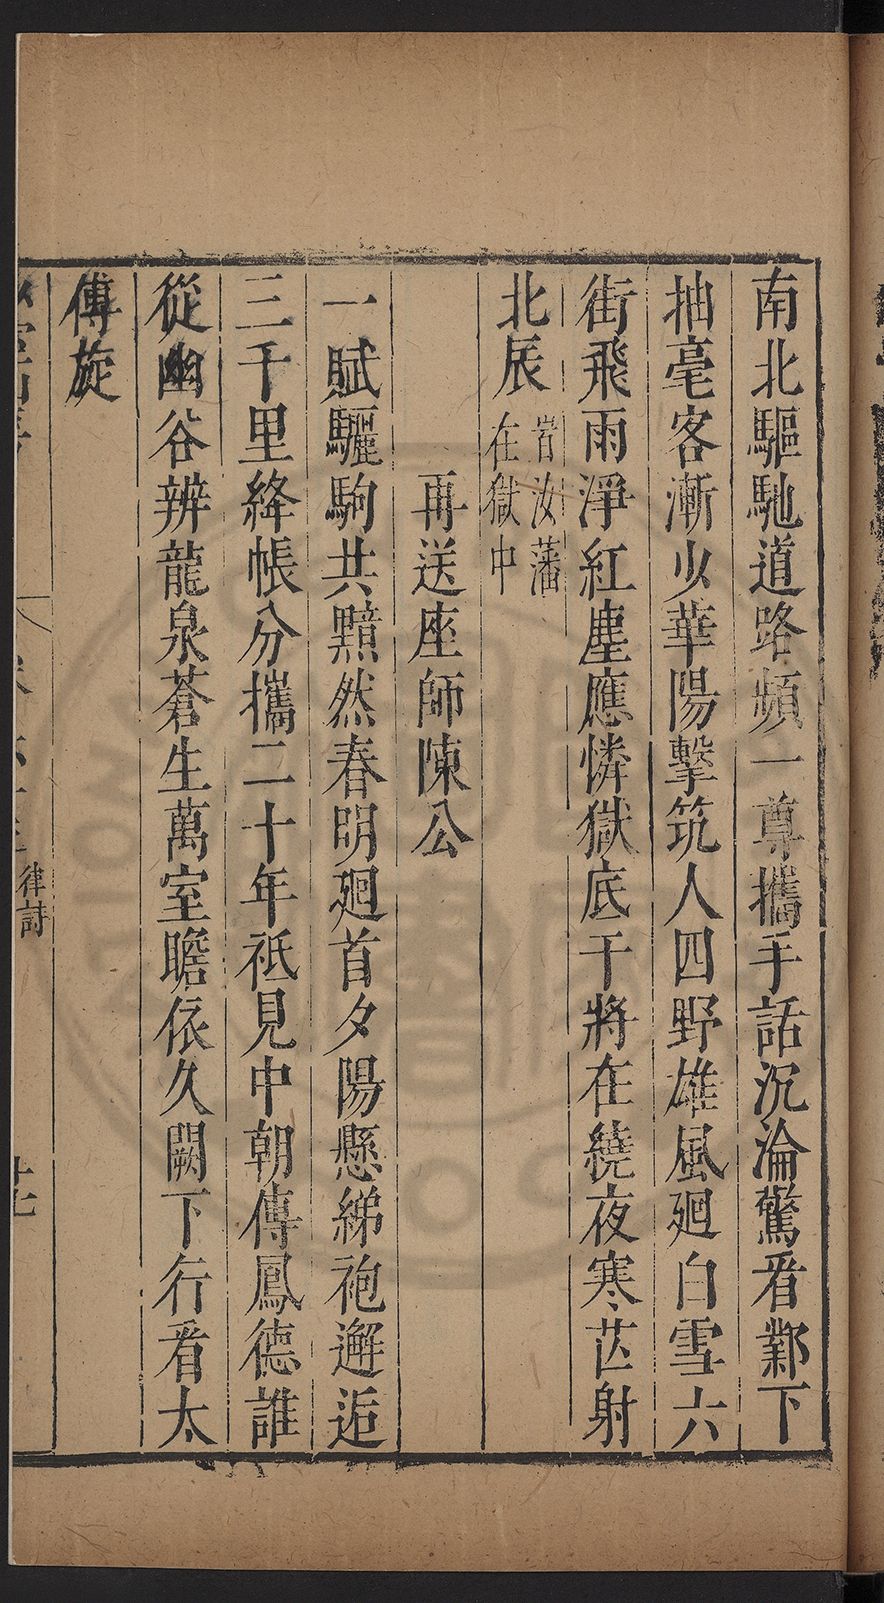 南北驅馳道路頻一尊攜手話沉淪驚看鄴下
抽毫客漸少華陽擊筑人四野雄風廻白雪六
街飛雨淨紅塵應憐獄底干將在繞夜寒芒射
北辰
岩汝藩
在獄中
再送座師陳公
一賦驪駒共黯然春明廻首夕陽懸綈袍邂逅
三千里絳帳分攜二十年祗見中朝傳鳳德誰
從幽谷辨龍泉蒼生萬室瞻依久闕下行看太
傅旋
律詩
廿七